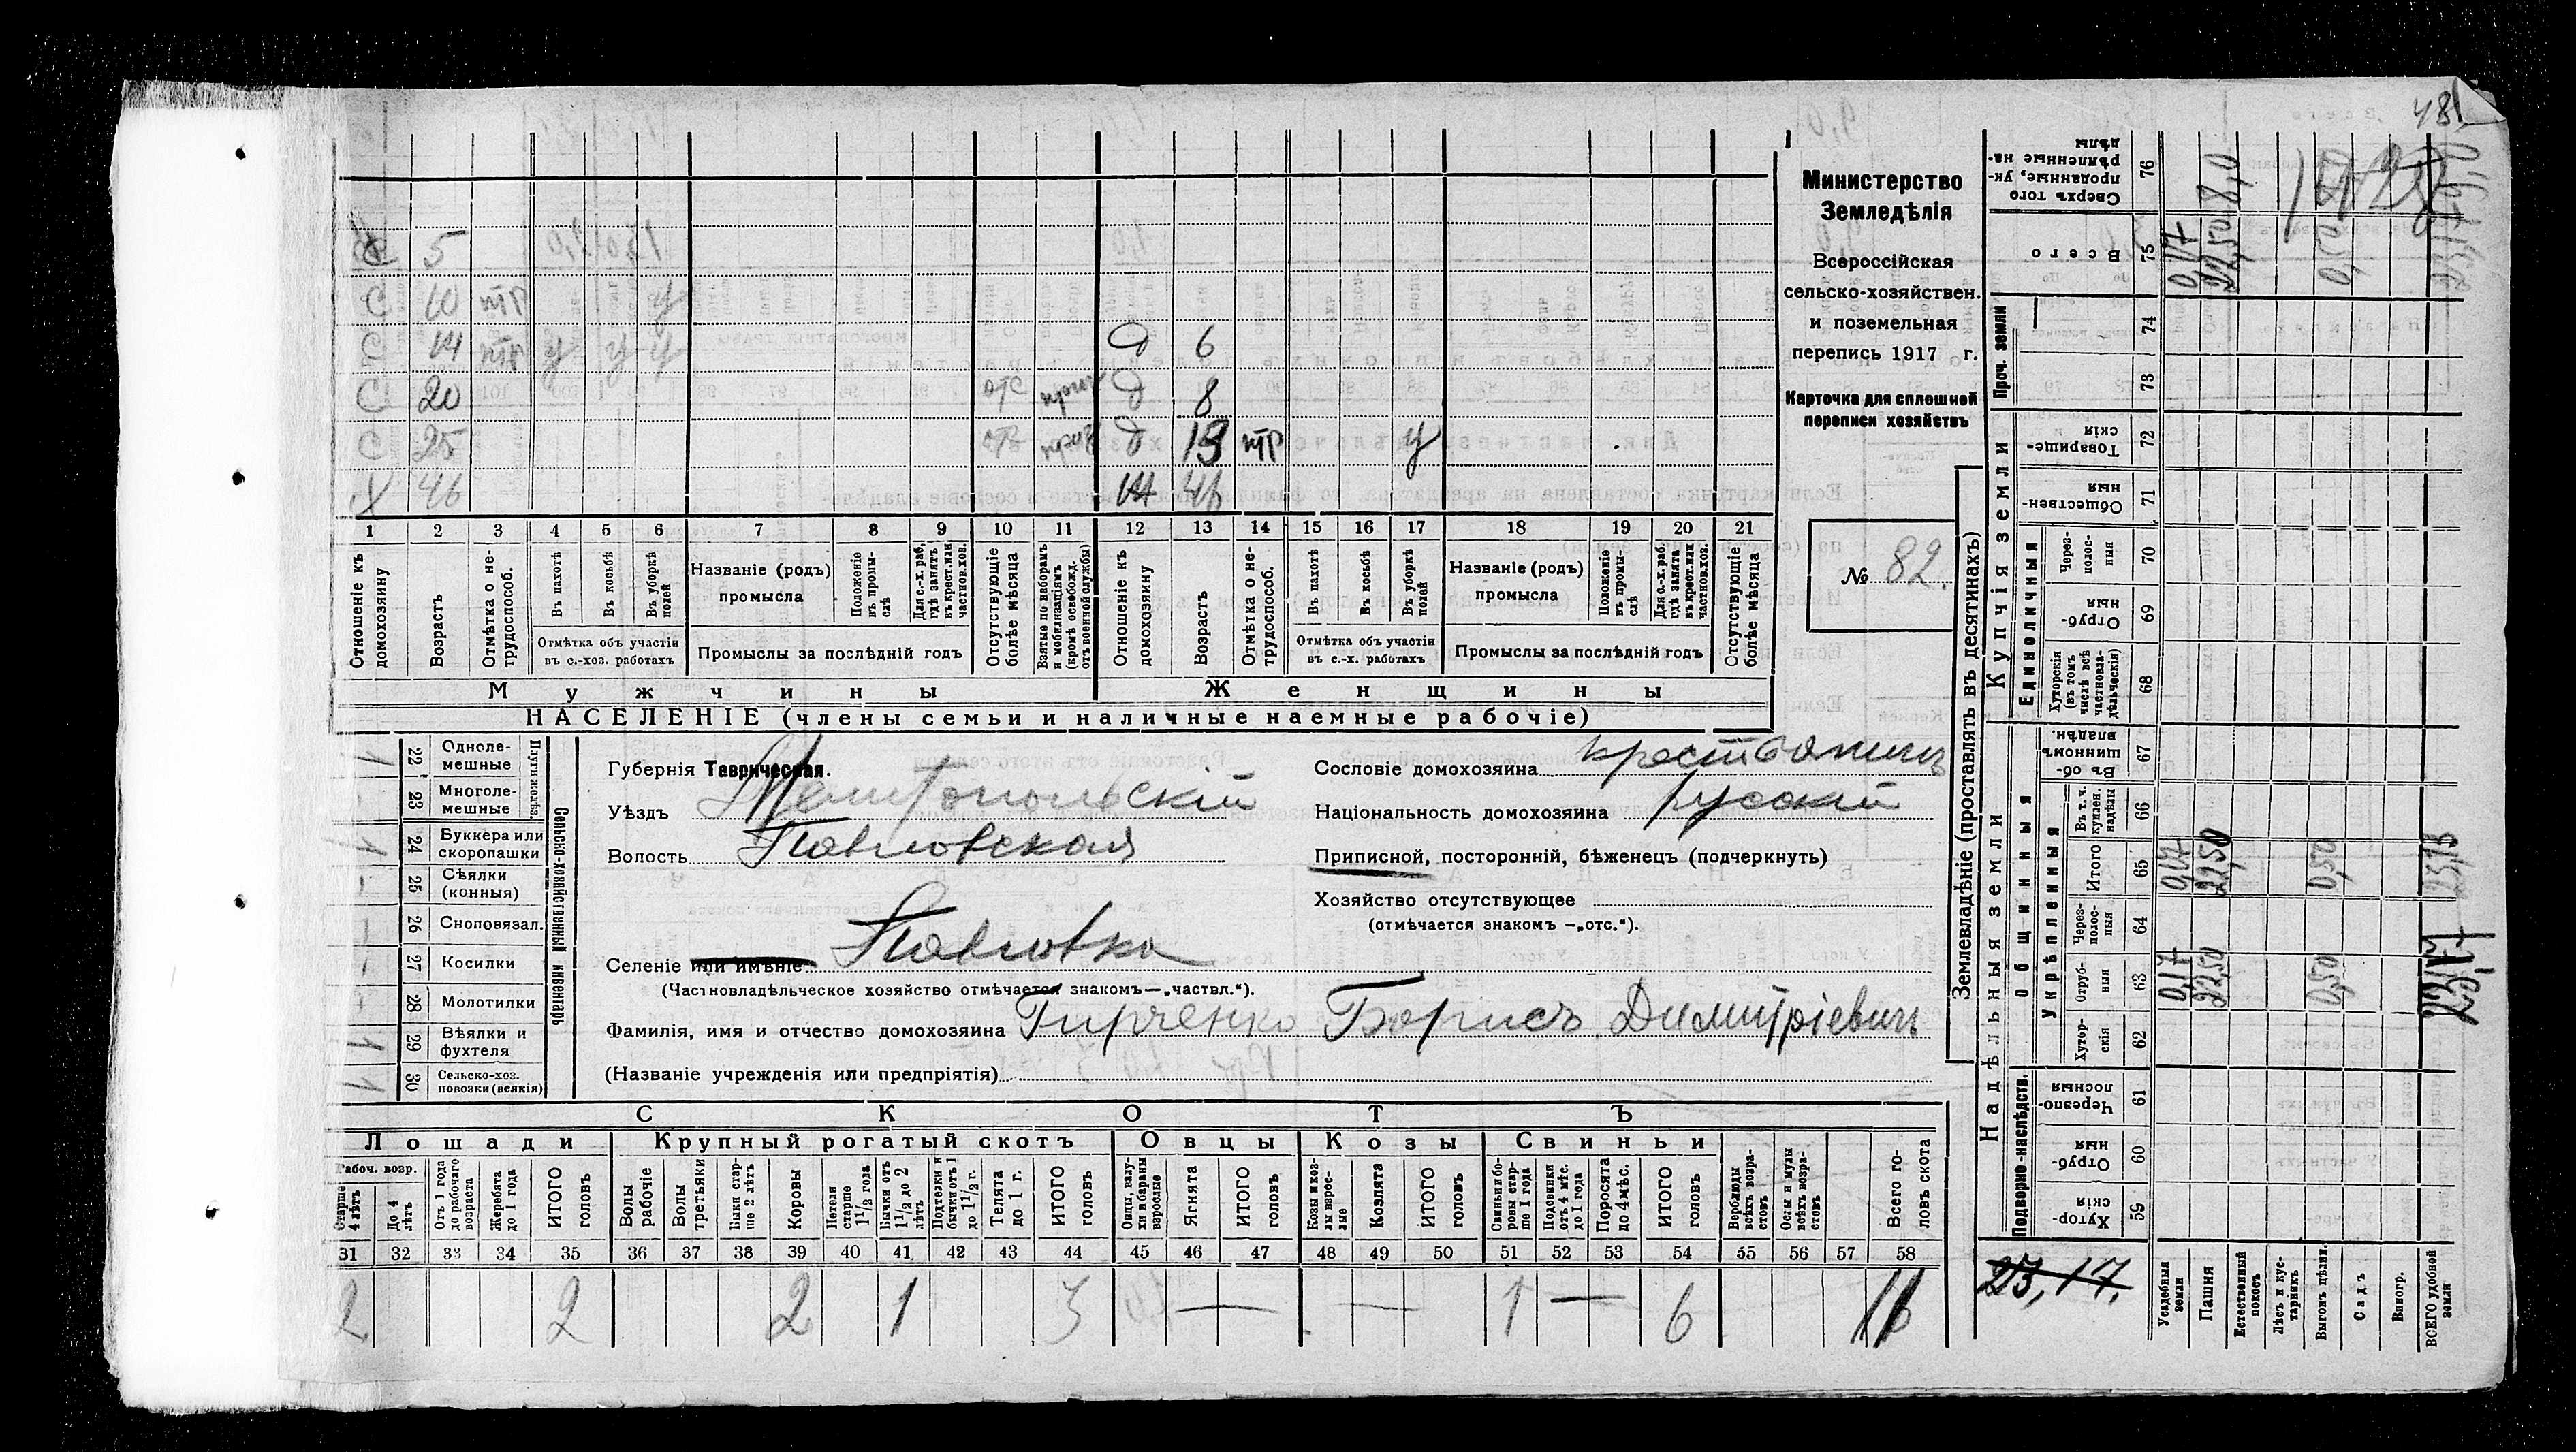 48
С 5
С 10 нтр у
С 14 нтр у у у Д 6
С 20 отс Д 8
С 25 Д 13 нтр у
Х 46 Ж 46
1 2 3 4 5 6 7 8 9 10 11 12 13 14 15 16 17 18 19 20 21
Отношеніе къ домохозяину
Возрастъ
Отмѣтка о нетрудоспособ.
Въ пахотѣ
Въ косьбѣ
Въ уборкѣ полей
Отмѣтка объ участіи
въ с.-хоз. работахъ
Названіе (родъ)
промысла
Положеніе въ промыслѣ
Для с.-х. раб, гдѣ занятъ въ крест. или частнов. хоз.
Промыслы за послѣдній годъ
Отсутствующіе болѣе мѣсяца
Взятые по наборамъ и мобилизаціямъ (кромѣ освобожд. отъ военной службы)
Отношеніе къ домохозяину
Возрастъ
Отмѣтка о нетрудоспособ.
Въ пахотѣ
Въ косьбѣ
Въ уборкѣ полей
Отмѣтка объ участіи
въ с.-х. работахъ
Названіе (родъ)
промысла
Положеніе въ промыслѣ
Для с.-х. раб. гдѣ занята въ крест. или частнов. хоз.
Промыслы за послѣдній годъ
Отсутствующіе болѣе мѣсяца
Мужчины Женщины
НАСЕЛЕНІЕ (члены семьи и наличные наемные рабочіе)
Министерство
Земледѣлія
Всероссійская
сельско-хозяйствен.
и поземельная
перепись 1917 г.
Карточка для сплошной
переписи хозяйствъ
№ 82
Сельско-хозяйственный инвентарь
Плуги желѣз.
22 Одноле-
мешные 1
23 Многоле-
мешные
24 Буккера или
скоропашки 1
25 Сѣялки
(конныя)
26 Сноповязал.
27 Косилки
28 Молотилки
29 Вѣялки и
фухтеля 1
30 Сельско-хоз.
повозки (всякія) 1
Губернія Таврическая.
Уѣздъ Мелитопольскій
Волость Павловская
Селеніе или имѣніе Павловка
(Частновладѣльческое хозяйство отмѣчается знакомъ—„частвл.“).
Фамилія, имя и отчество домохозяина Гирченко Борисъ Димитріевичъ
(Названіе учрежденія или предпріятія)
Сословіе домохозяина крестьянинъ
Національность домохозяина русскій
Приписной, посторонній, бѣженецъ (подчеркнуть)
Хозяйство отсутствующее
(отмѣчается знакомъ —„отс.“).
СКОТЪ
Лошади Крупный рогатый скотъ Овцы Козы Свиньи
Рабоч. возр.
Старше 4 лѣтъ
До 4 лѣтъ
Отъ 1 года до рабочаго возраста
Жеребята до 1 года
ИТОГО головъ
Волы рабочіе
Волы третьяки
Быки старше 2 лѣтъ
Коровы
Нетели старше 1 1/2 года
Бычки отъ 1 1/2 до 2 лѣтъ
Подтелки и бычки отъ 1 до 1 1/2 г.
Телята до 1 г.
ИТОГО головъ
Овцы, валухи и бараны взрослые
Ягнята
ИТОГО головъ
Козы и козлы взрослые
Козлята
ИТОГО головъ
Свиньи боровы старше 1 года
Подсвинки отъ 4 мѣс. до 1 года
Поросята до 4 мѣс.
ИТОГО головъ
Верблюды всѣхъ возрастовъ
Ослы и мулы всѣхъ возрастовъ
Всего головъ скота
31 32 33 34 35 36 37 38 39 40 41 42 43 44 45 46 47 48 49 50 51 52 53 54 55 56 57 58
2 2 2 1 3 — — 1 — 6 11
Землевладѣніе (проставлять въ десятинахъ)
Надѣльныя земли
Купчія земли
Проч. земли
Подворно-наслѣдств.
Общинныя
Укрѣпленныя
Единоличныя
Сверхъ того проданные, укрѣпленные надѣлы 76
Всего 75
74
73
Товарищескія 72
Общественныя 71
Черезполосныя 70
Отрубныя 69
Хуторскія (въ томъ числѣ всѣ частновладѣльческія) 68
Въ общинномъ владѣн. 67
Въ т. ч. куплен. надѣлы 66
Итого 65
Черезполосныя 64
Отрубныя 63
Хуторскія 62
Черезполосныя 61
Отрубныя 60
Хуторскія 59
0,17 22,50 8,0
0,50
0,17 22,50 0,50
0,17 22,50 0,50 23,17
23,17.
Усадебныя земли
Пашня
Естественный покосъ
Лѣсъ и кустарникъ
Выгонъ цѣлин.
Садъ
Виногр.
ВСЕГО удобной земли